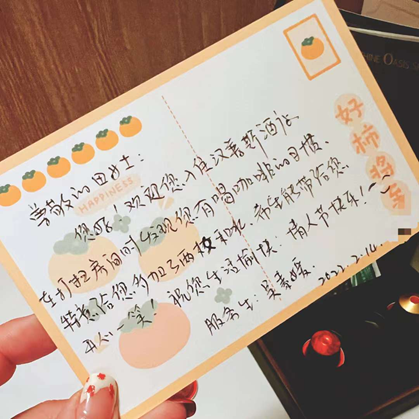 尊敬的田女士：
您好！欢迎您入住汉庭酒店
在打扫房间时发现您有喝咖啡的习惯、
特意给您多加了两枚和礼、希望能带给您
开心一笑！祝您生活愉快：情人节快乐！~~
服务生：吴
2022.2.14.
HAPPINESS
好柿
OASIS